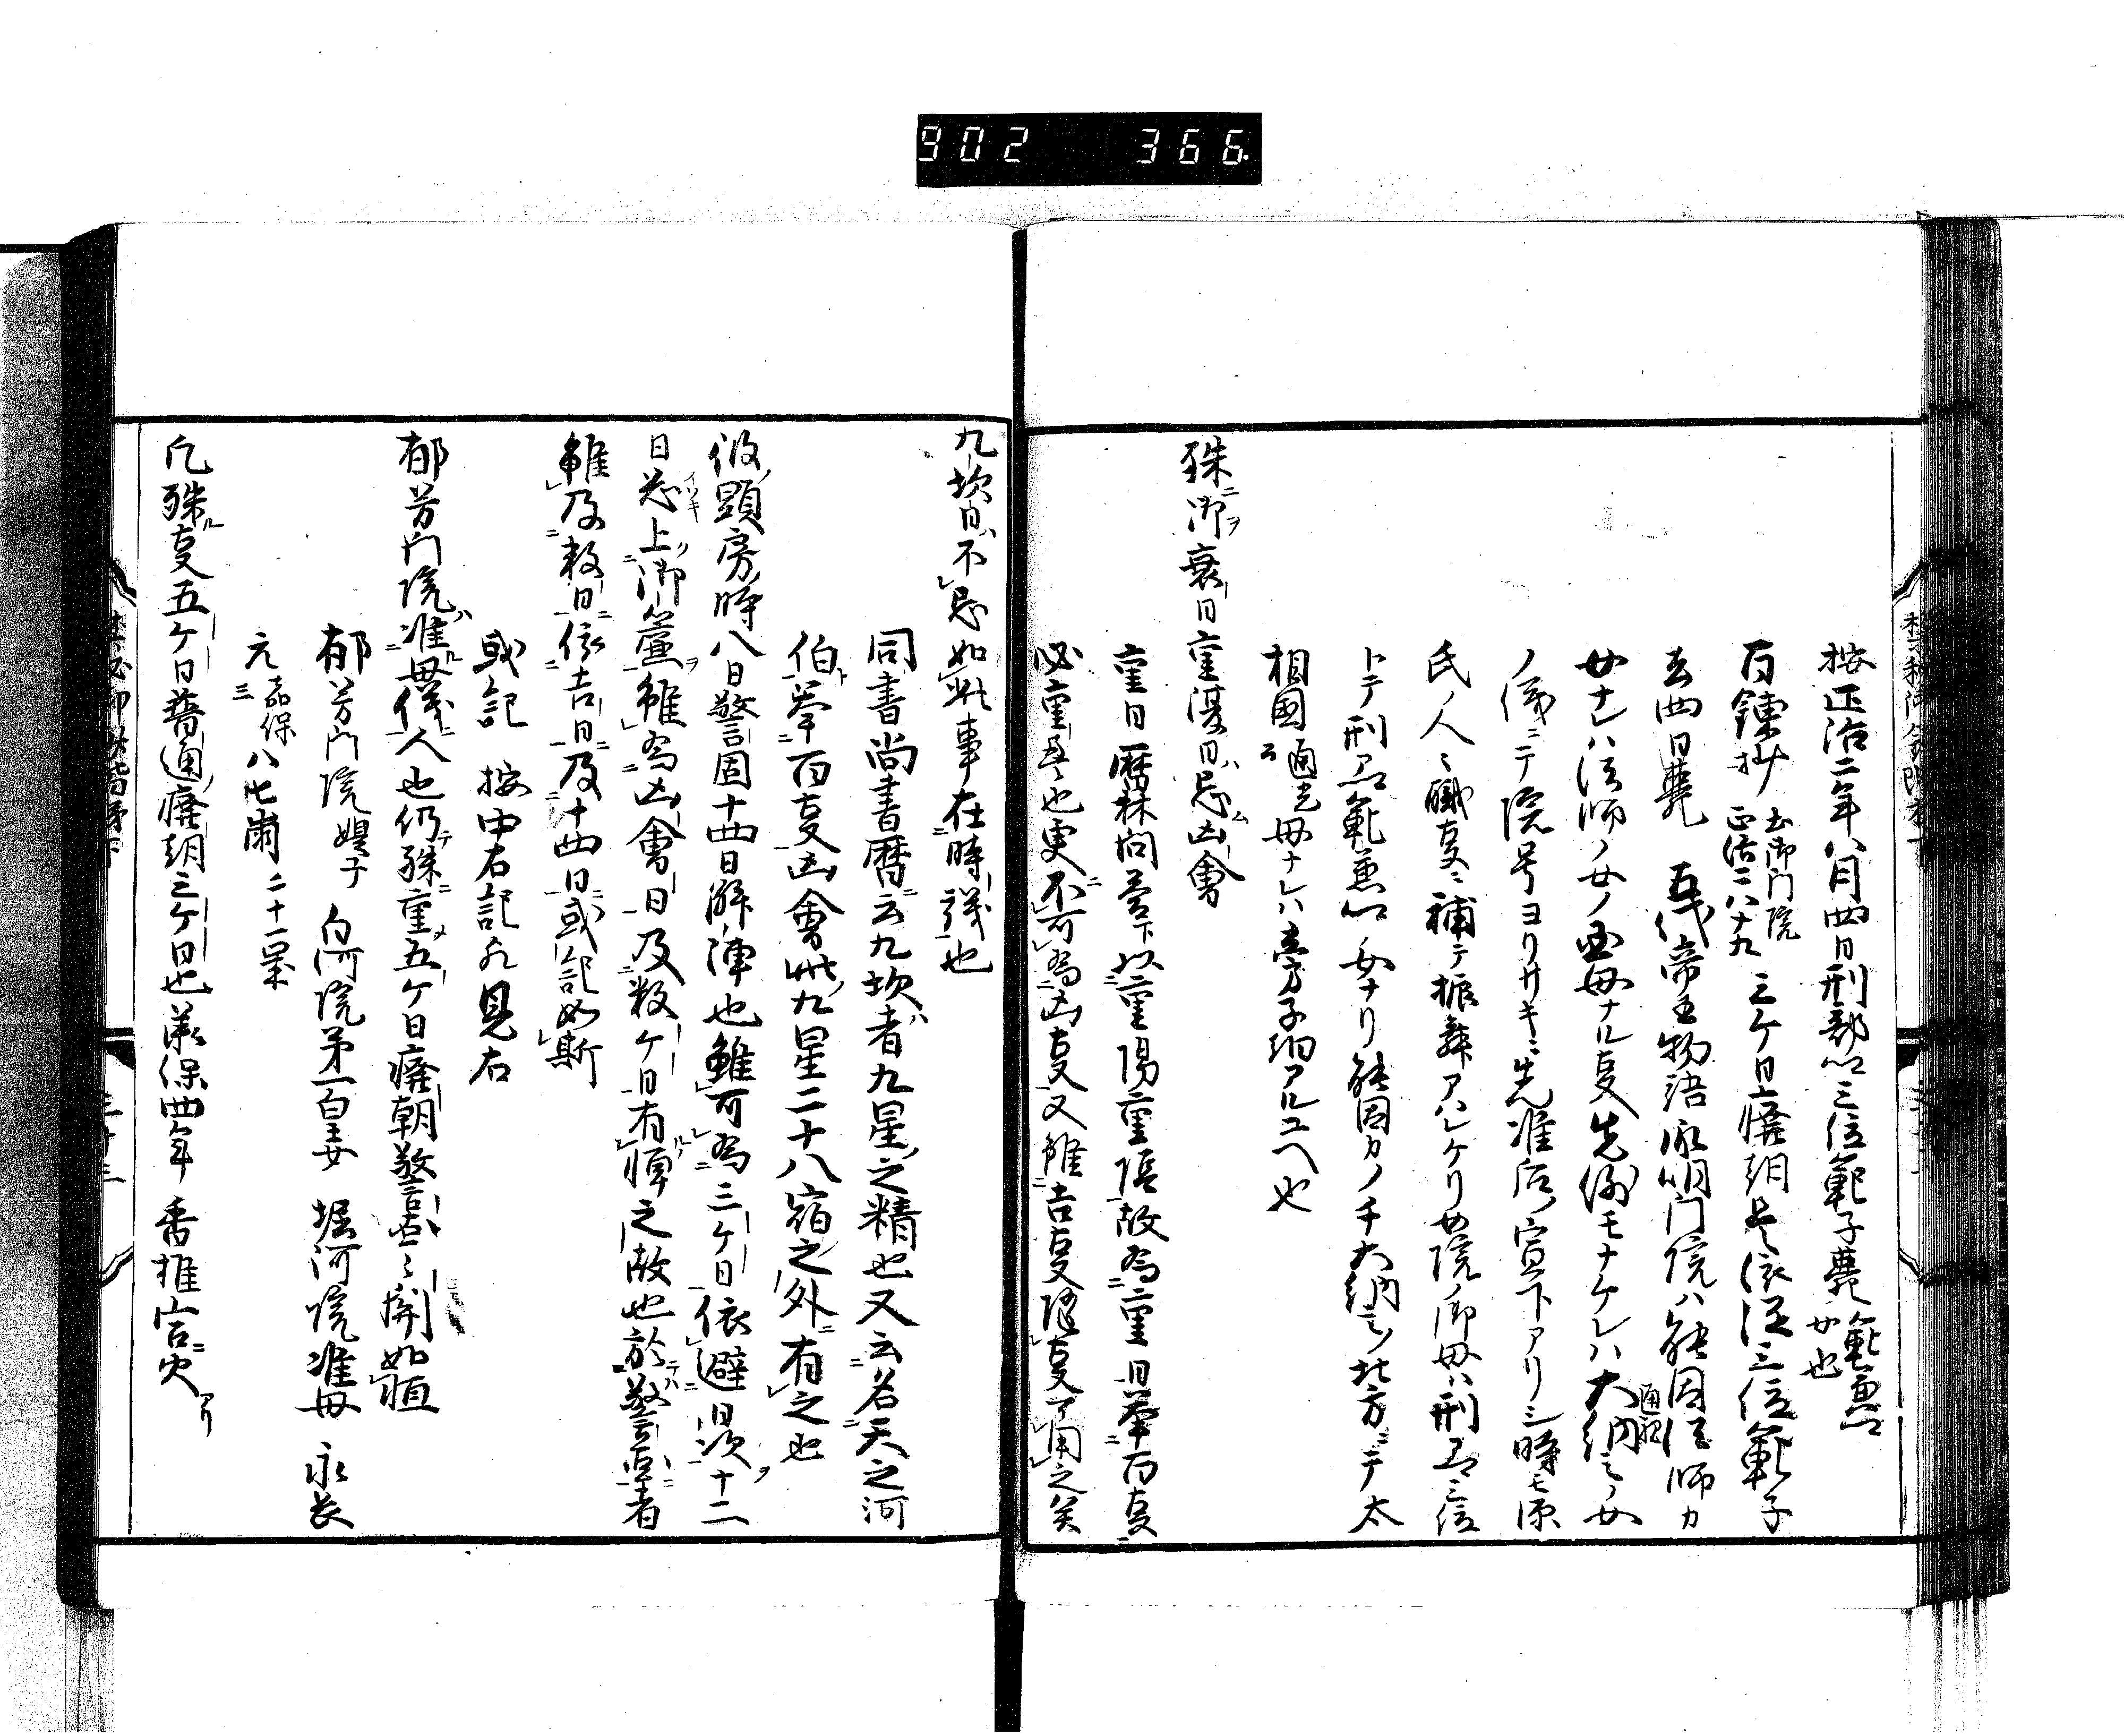 902 366
按正治二年八月四日刑部卿三位範子薨範兼卿女也
百錬抄土御門院正治二八十九三ケ日廃朝是依従三位範子
去四日薨 五代帝王物語承明門院ハ能因法師カ
女ナレハ法師ノ女ノ国母ナル事先例モナケレハ大納言通親ノ女
ノ儀ニテ院号ヨリサキニ先准后ノ宣下アリシ時モ源
氏ノ人々職事ニ補テ振舞アハレケリ女院ノ御母ハ刑部三位
トテ刑部卿範兼卿ノ女ナリ能因カノチ大納言ノ北方ニテ太
相国通光公母ナレハ旁子細アルユヘ也
殊御衰日重復日忌凶會
重日暦林問答下以重陽重陰故為重日挙百事
必重是也更不可為凶事又雖吉事
九坎日不忌如此事在時議也
同書尚書暦云九坎者九星之精也又云名天之河
伯挙百事凶會此九星二十八宿之外有之也
彼顕房時八日警固十四日解陣也雖可為三ケ日依避日次十二
日忌上御簾雖為凶會日及数ケ日有憚之故也於警固者
雖及数日依吉日及十四日或記如斯
或記 按中右記欤見右
郁芳門院准母儀人也仍殊重五ケ日廃朝警固々關如恒
郁芳門院媞子 白河院第一皇女 堀河院准母 永長
元嘉保三八七崩二十一歳
凡殊事五ケ日普通廃朝三ケ日也承保四年 香椎宮火アリ